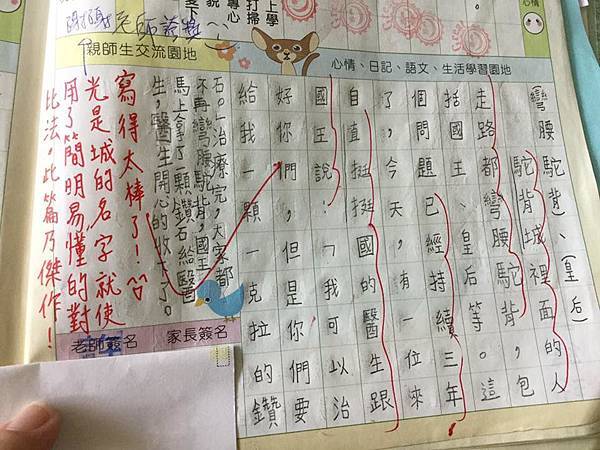 上學
打掃
專心
心情
親師生交流園地
心情、日記、語文、生活學習園地
(彎腰駝背)、(皇后)
駝背城裡面的人
走路都彎腰駝背,包
括國王、皇后等。這
個問題已經持續三年
了,今天,有一位來
自直挺挺國的醫生跟
國王說:「我可以治
好你們,但是你們要
給我一顆一克拉的鑽
石。」治療完,大家都
不再彎腰駝背,國王
馬上拿了一顆鑽石給醫
生,醫生開心的收下了。
寫得太棒了!^^
光是城的名字就使
用了簡明易懂的對
比法。此篇乃傑作!
老師簽名
家長簽名